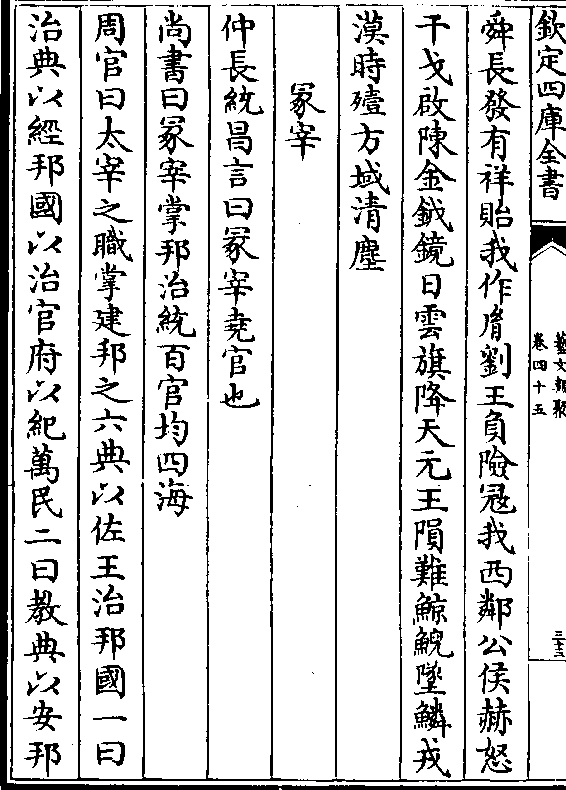 欽定四庫全書
藝文類聚
卷四十五
三十三
舜長發有祥貽我作胥劉王負險寇我西鄰公侯赫怒
干戈啟陳金鉞鏡日雲旗降天元王隕難鯨鯢墜鱗戎
漠時殪方域清塵
冢宰
仲長統昌言曰冢宰堯官也
尚書曰冢宰掌邦治統百官均四海
周官曰太宰之職掌建邦之六典以佐王治邦國一曰
治典以經邦國以治官府以紀萬民二曰教典以安邦